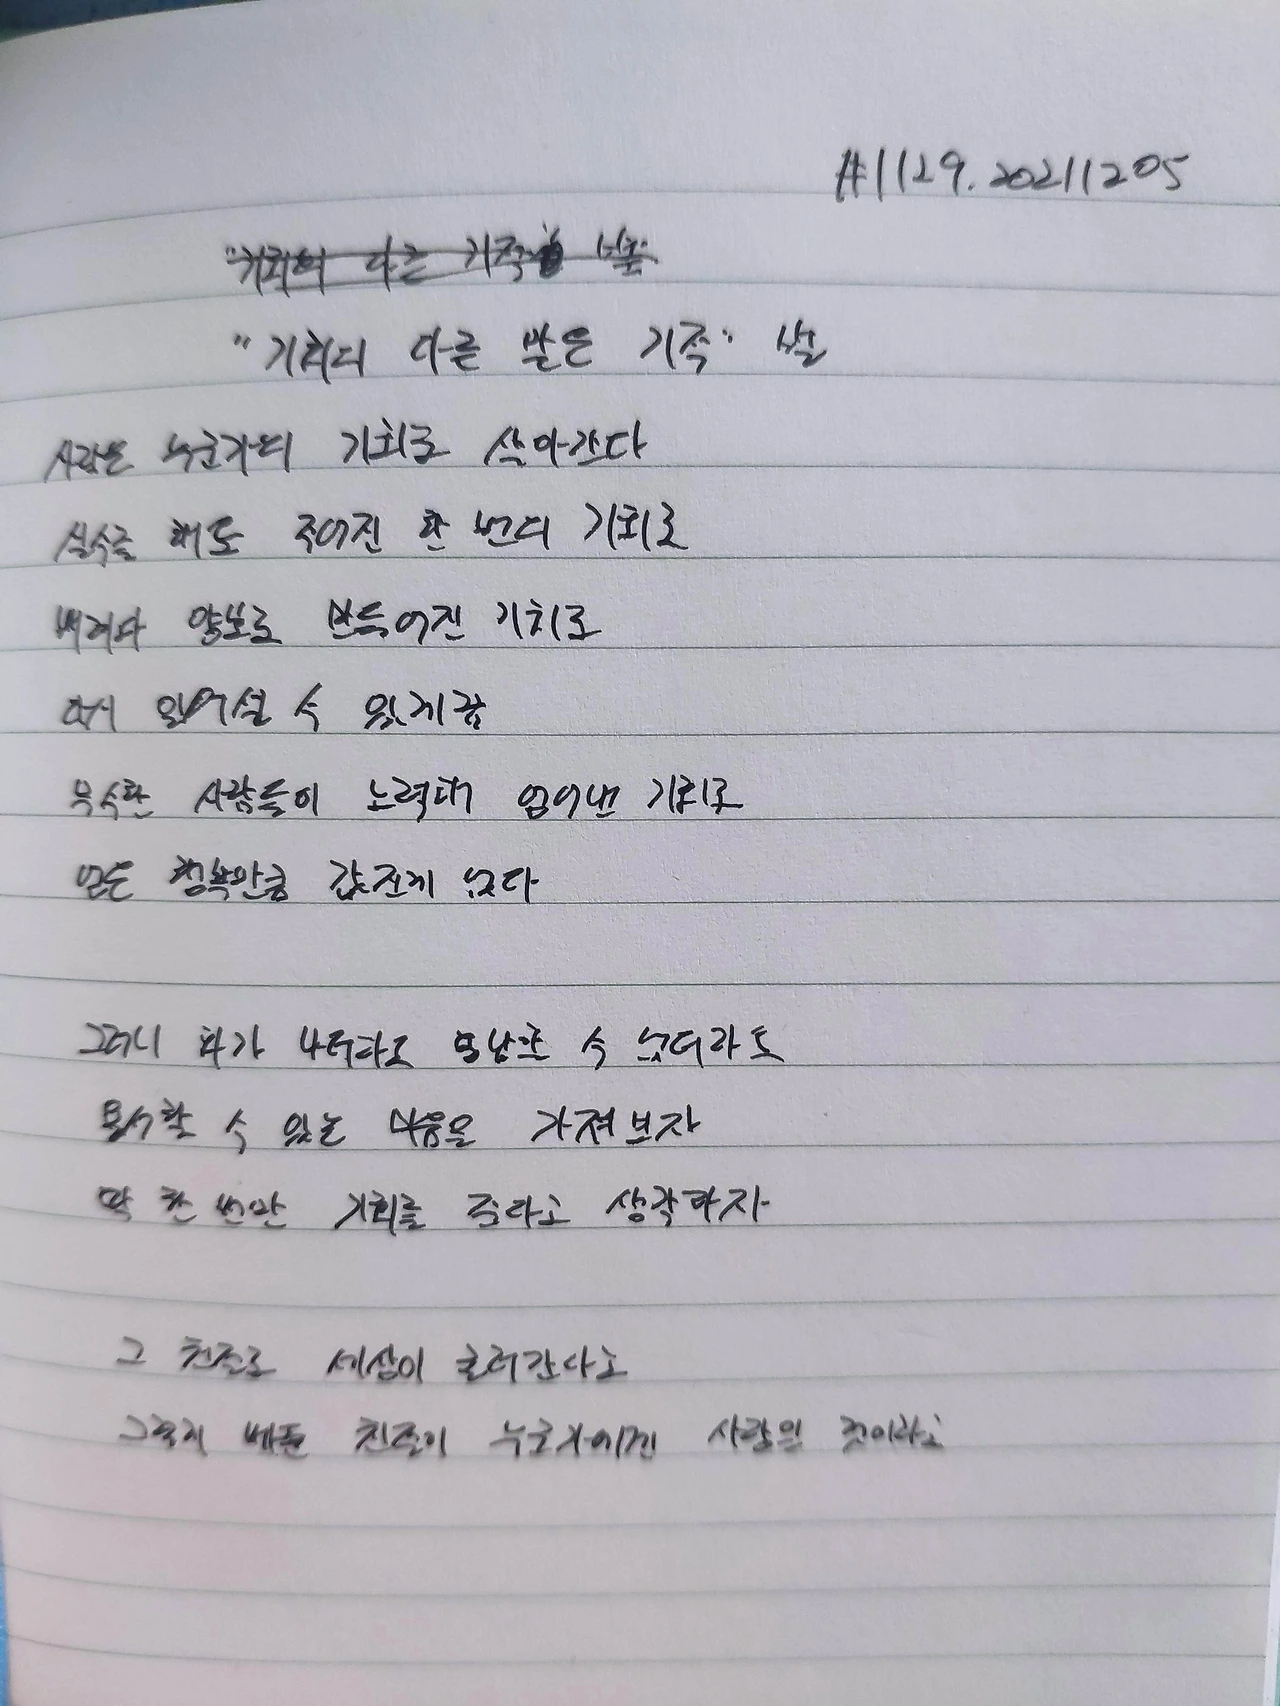 #1129. 20211205
"기회의 다른 기적
"기회의 다른 말은 기적"
사람은 누군가의 기회로 살아간다
실수를 해도 주어진 한 번의 기회로
배려와 양보로 만들어진 기회로
다시 일어설 수 있게끔
무수한 사람들이 노력해 얻어낸 기회로
얻은 행복만큼 값진게 없다
그러니 화가 나더라도 용납할 수 없더라도
용서할 수 있는 마음을 가져보자
딱 한 번만 기회를 준다고 생각하자
그 친절로 세상이 흘러간다고
그렇게 베푼 친절이 누군가에겐 사랑일 것이라고